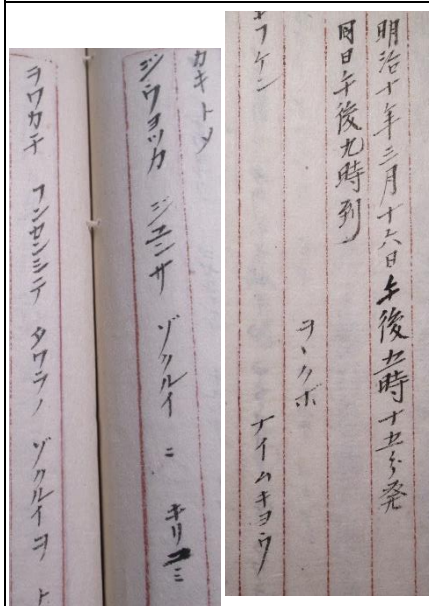 明治十年三月十六日午後五時十五分発
同日午後九時到
ヲヽクボ
フケン ナイムキヨウ
カキトメ
ジウヨツカ ジユンサ ゾクルイ ニ キリコミ
ヲワカテ フンセンシテ タワラノ ゾクルイヲ ト